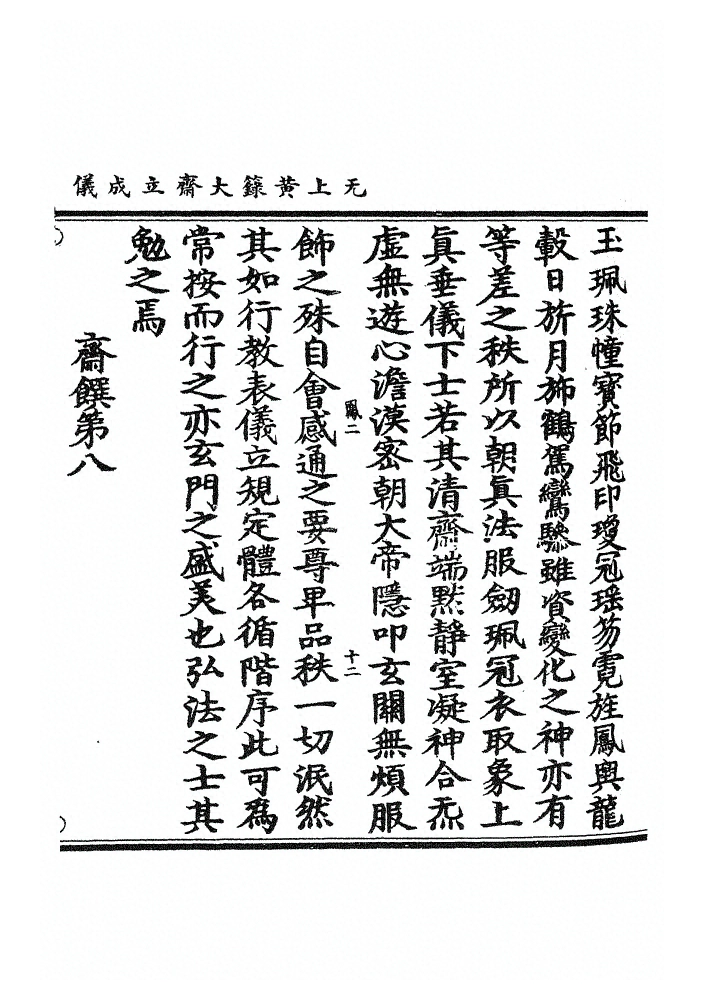 无上黄籙大齋立成儀
玉珮珠幢寶節飛印瓊冠瑶笏霓旌鳳輿龍
轂日旂月斾鶴駕鸞驂雖資變化之神亦有
等差之秩所以朝眞法服劒珮冠衣取象上
眞垂儀下士若其清齋端黙靜室凝神合炁
虛無遊心澹漠密朝大帝隱叩玄關無煩服
鳳二
十二
飾之殊自會感通之要尊卑品秩一切泯然
其如行教表儀立規定體各循階序此可爲
常按而行之亦玄門之盛美也弘法之士其
勉之焉
齋饌第八